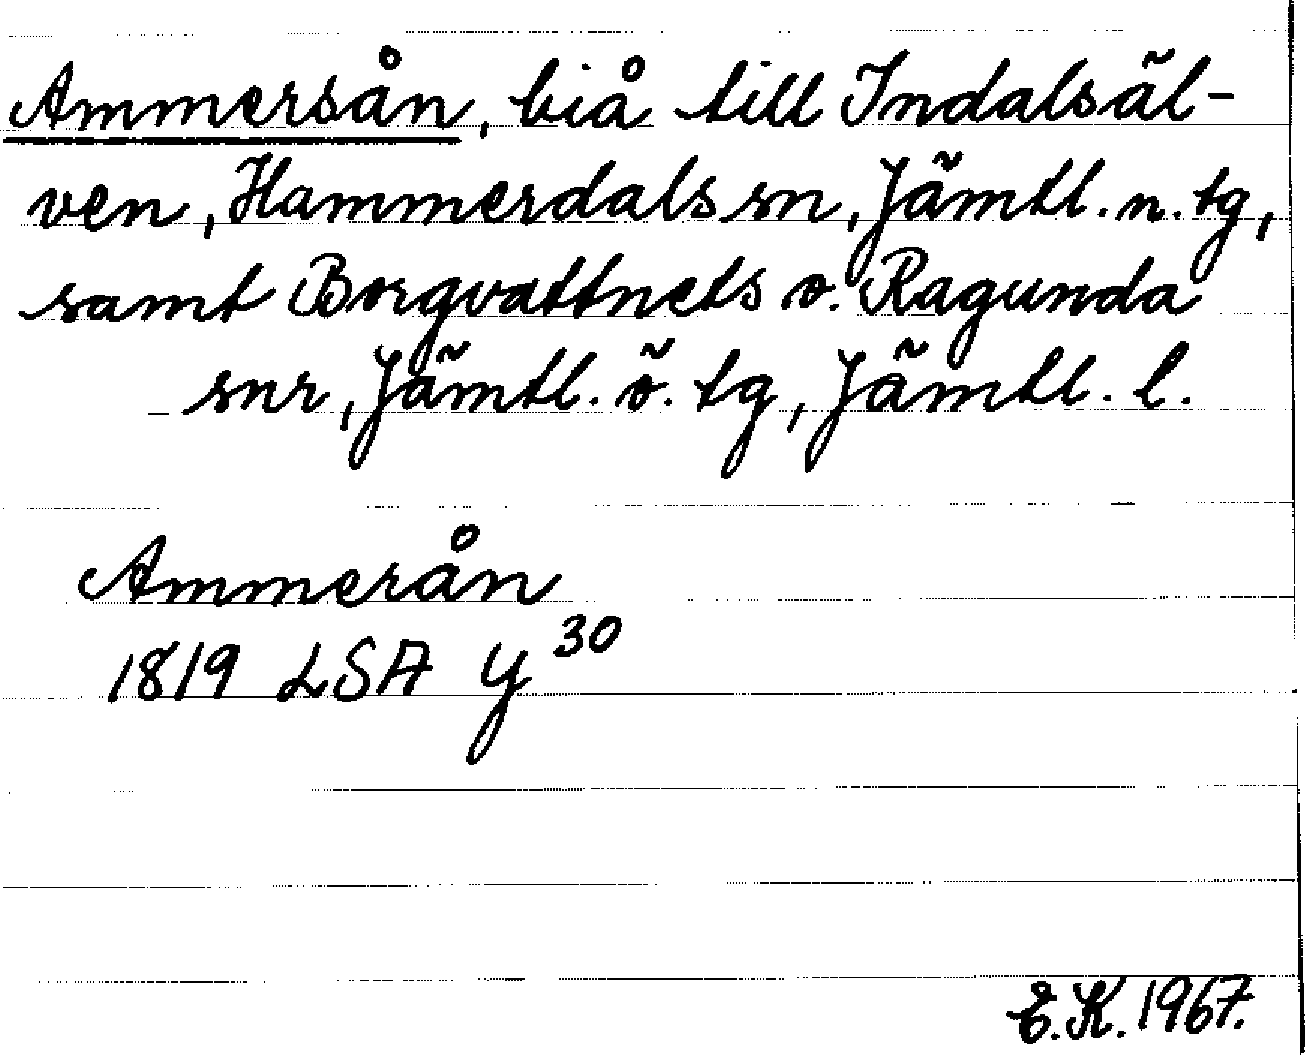 Ammersån, biå till Indalsäl-
ven, Hammerdals sn, Jämtl. n. tg,
samt Borgvattnets o. Ragunda
snr, Jämtl. ö. tg, Jämtl. l.
Ammerån
1819 LSA Y30
E.K. 1967.